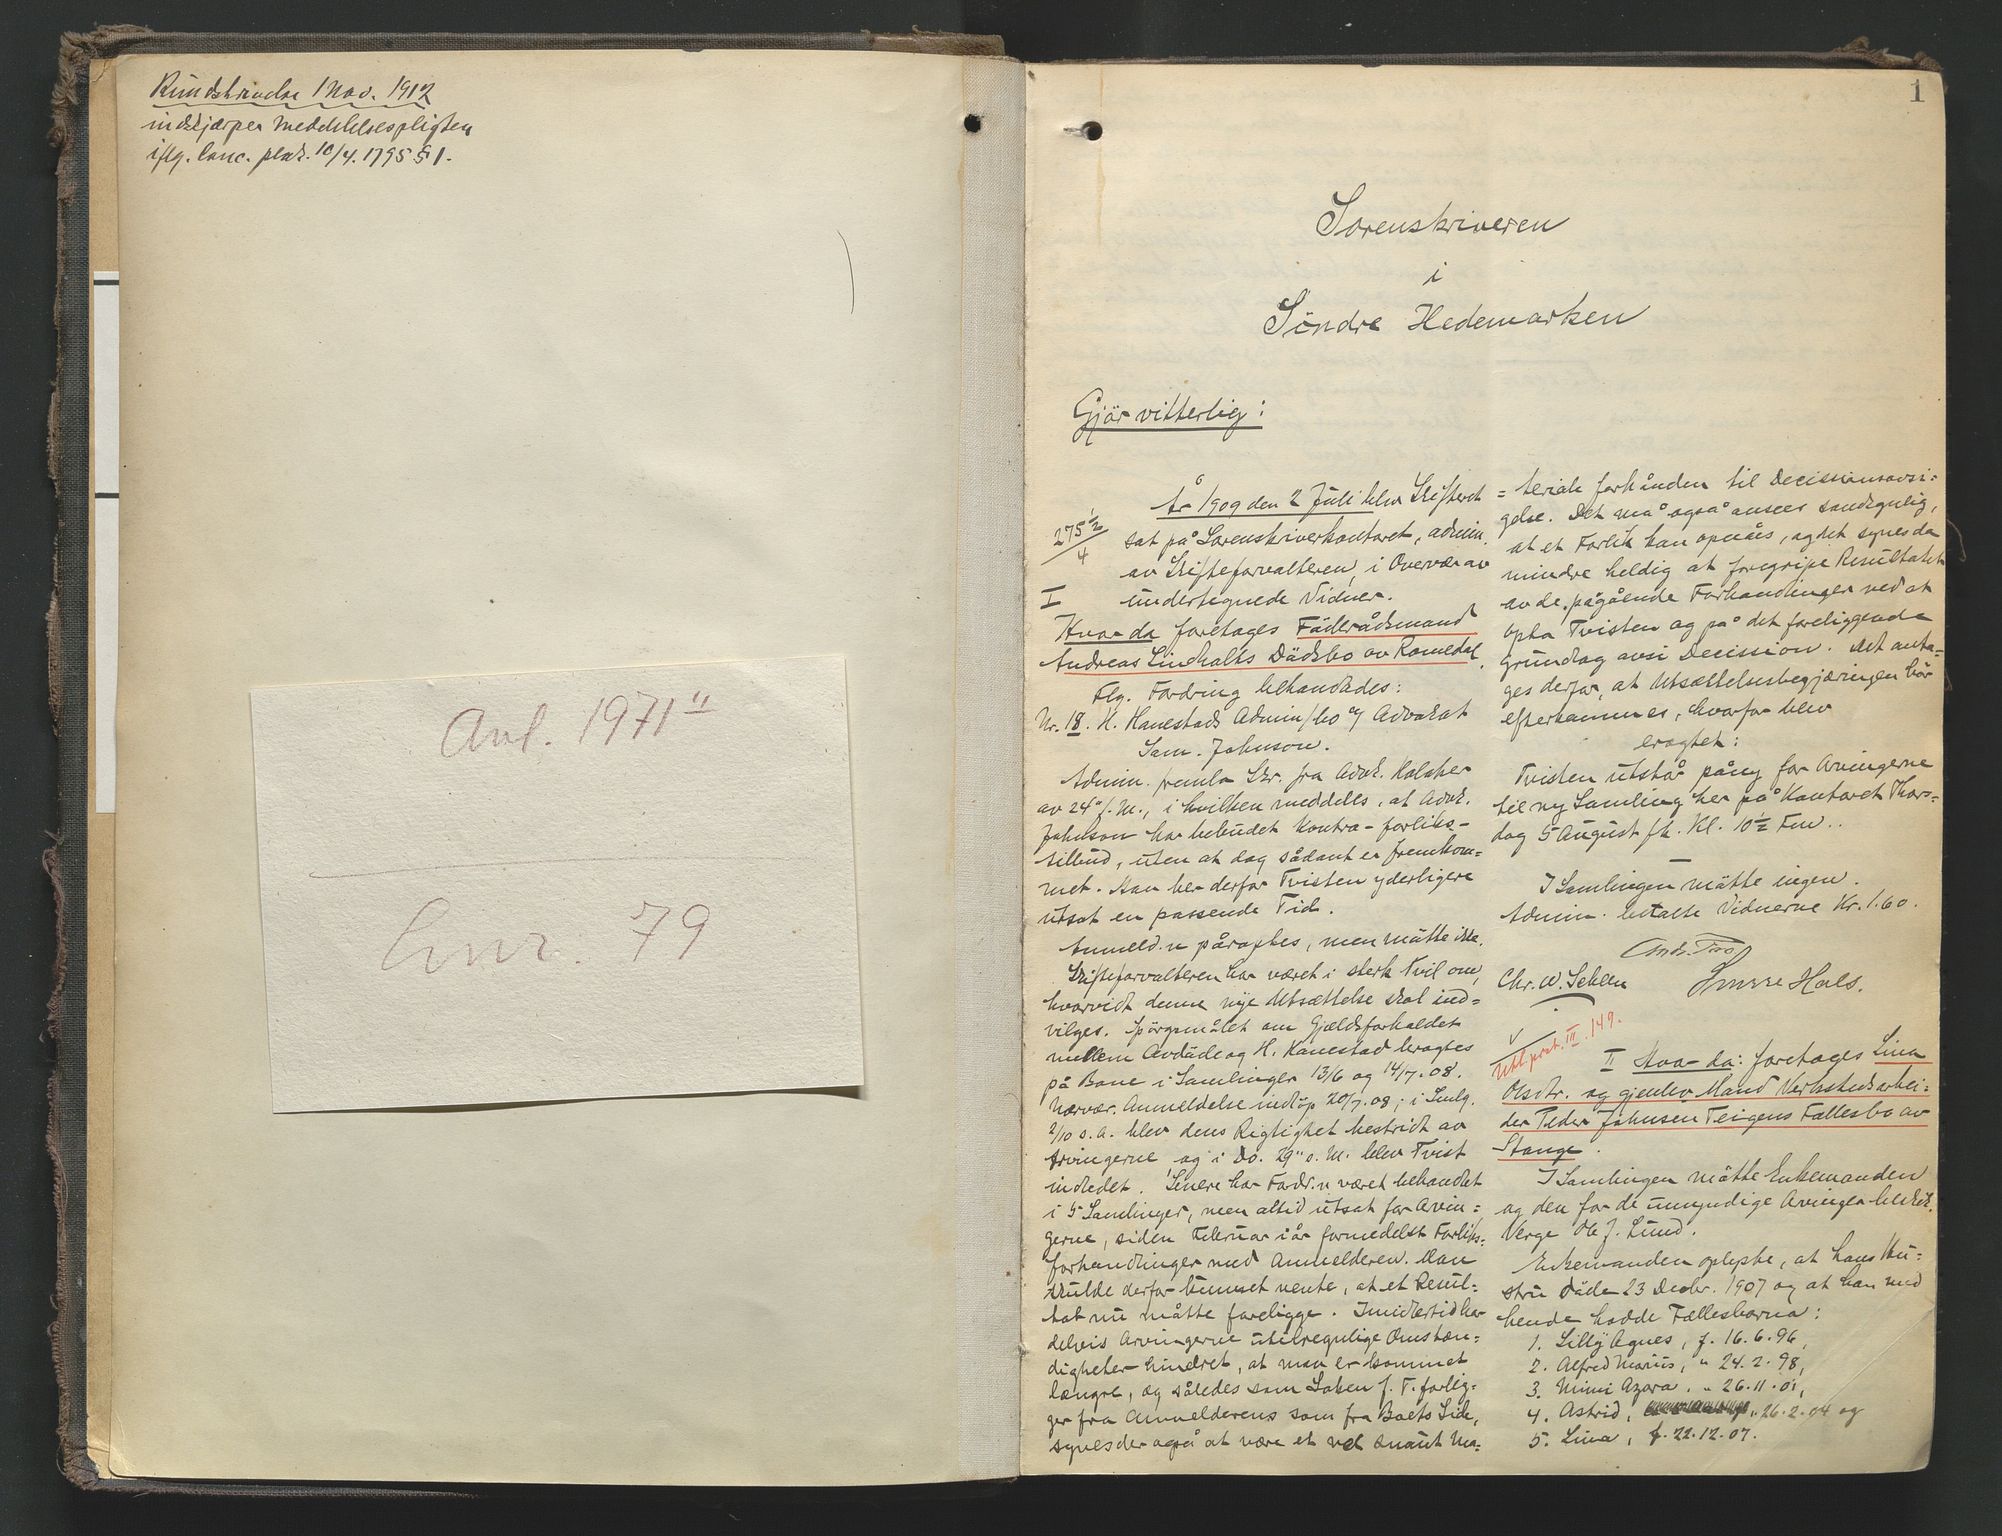 Rundskrivelse 1 Nov. 1912
indskjærper Meddelelsespligten
iflg. Canc. plak. 10/4. 1795 § 1.
Avl. 1971 II
Lnr. 79
1
Sorenskriveren
i
Söndre Hedemarken
Gjör vitterlig:
År 1909 den 2 Juli blev Skifteret
275 1/2
4
sat på Sorenskriverkontoret, admin.
av Skifteforvalteren, i Overvær av
undertegnede Vidner.
I
Hvor da foretages Föderådsmand
Andreas Lindholts Dödsbo av Romedal.
Flg. Fordring behandledes:
Nr. 18. H. Hanestads Admin/bo v/ Advokat
Sam. Johnson.
Admin. fremla Skr. fra Adv.
av 24 f. M., i hvilken meddeles, at Adv.
Johnson har bebudet Kontra-forliks-
tilbud, uten at dog sådant er fremkom=
met. Han ber derfor Tvisten yderligere
utsat en passende Tid.
Anmeld.n påroptes, men mötte ikke.
Skifteforvalteren har været i sterk Tvil om,
hvorvidt denne nye Utsættelse skal ind=
vilges. Spörgsmålet om Gjældsforholdet
mellem Avdöde og H. Hanestad bragtes
på Bane i Samlinger 13/6 og 14/7. 08.
Nærvær. Anmeldelse indlöp 20/7. 08; i Smlg.
2/10 s. a. blev dens Rigtighet bestridt av
Arvingerne og i Do. 29 s. M. blev Tvist
indledet. Senere har Fordr.n været behandlet
i 5 Samlinger, men altid utsat for Arvin=
gerne, siden Februar i år formedelst Forliks=
forhandlinger med Anmelderen. Man
skulde derfor kunnet vente, at et Resul=
tat nu måtte foreligge. Imidlertid har
delvis Arvingerne utilregnelige Omstæn=
digheter hindret, at man er kommet
længre, og således som Saken f. T. forlig=
ger fra Anmelderens som fra Boets Side,
synes der også at være et vel knapt Ma=
= teriale forhånden til Decissionsavsi=
gelse. Det må også ansees sandsynlig,
at et Forlik kan opnåes, og det synes da
mindre heldig at foregripe Resultatet
av de pågående Forhandlinger ved at
opta Tvisten og på det foreliggende
Grundlag avsi Decission. Det anta=
ges derfor, at Utsættelsesbegjæringen bör
efterkommes, hvorfor blev
eragtet:
Tvisten utstår påny for Arvingerne
til ny Samling her på Kontoret Thors=
dag 5 August fk. Kl. 10 1/2 Fm..
I Samlingen mötte ingen.
Admin. betalte Vidnerne Kr. 1.60.
Chr. W. Sehlen
Hals.
Utl. prot. III. 149.
II Hvor da: foretages Lina
Olsdtr. og gjenlev. Mand Verkstedsarbei=
der Peder Johnsen Teigens Fællesbo av
Stange.
I Samlingen mötte Enkemanden
og den for de umyndige Arvinger beskik.
Verge Ole J. Lund.
Enkemanden oplyste, at hans Hu=
stru döde 23 Decbr. 1907 og at han med
hende hadde Fællesbarna:
1. Lilly Agnes, f. 16.6.96,
2. Alfred Marius, " 24.2.98,
3. Mimi Azora, " 26.11.01,
4. Astrid, " 26.2.04 og
5. Lina, f. 22.12.07.